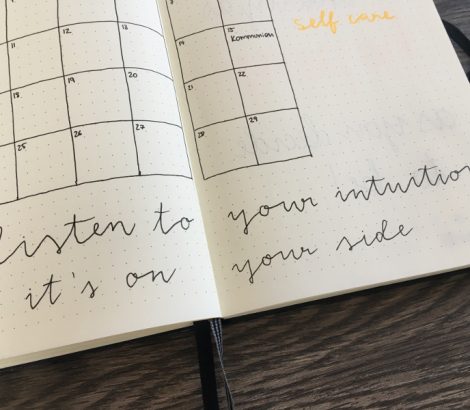 11 12. 13.
14. 15. Kommunion
self care
18. 19. 20.
21. 22.
25 26. 27.
28. 29.
listen to your intuition
it's on your side